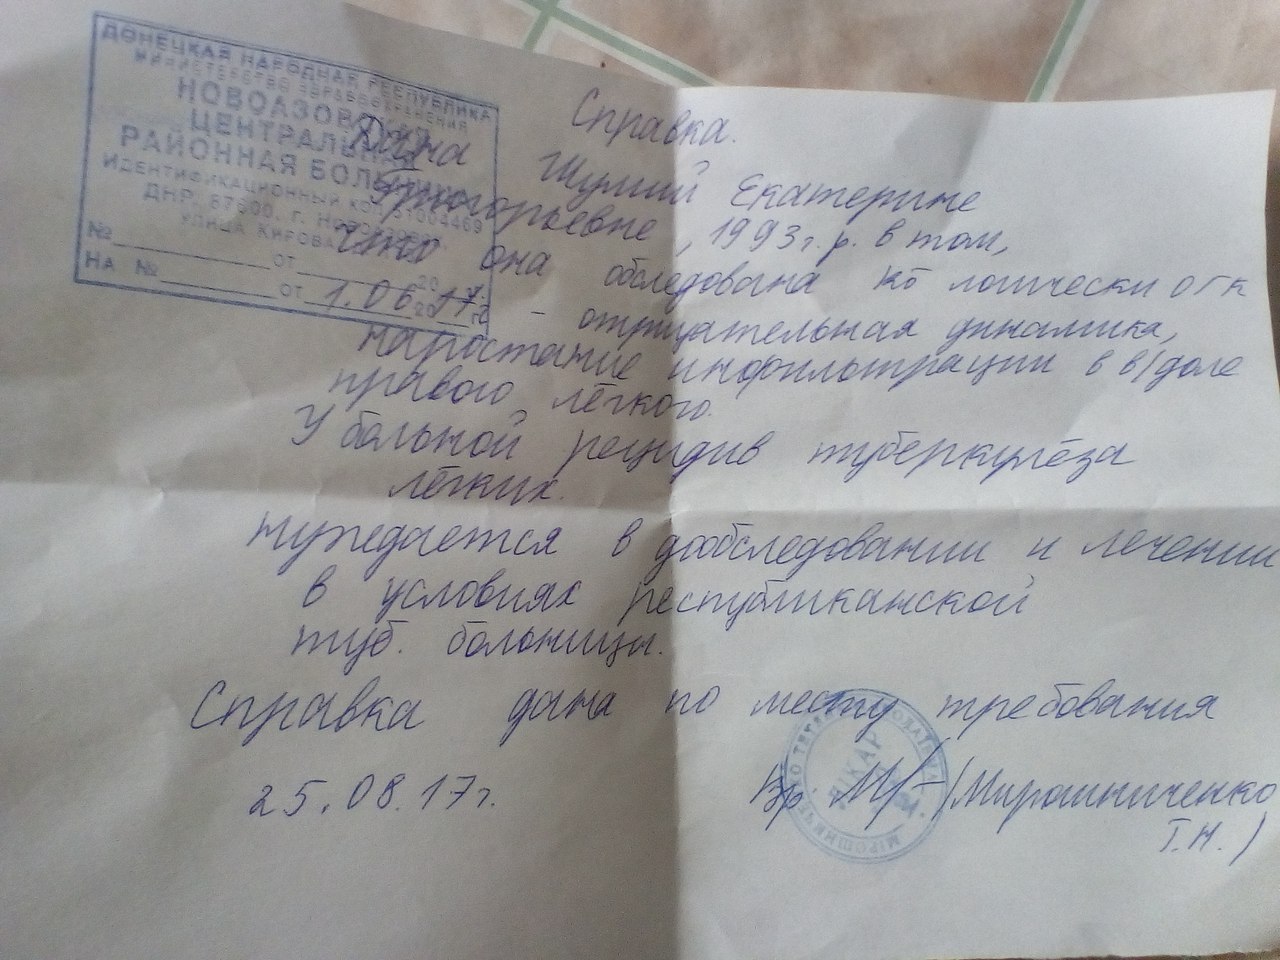 ДОНЕЦКАЯ НАРОДНАЯ РЕСПУБЛИКА
МИНИСТЕРСТВО ЗДРАВООХРАНЕНИЯ
НОВОАЗОВСКАЯ
ЦЕНТРАЛЬНАЯ
РАЙОННАЯ БОЛЬНИЦА
ИДЕНТИФИКАЦИОННЫЙ КОД 51004469
ДНР, 87600, г. НОВОАЗОВСК,
УЛИЦА КИРОВА
№ от 20
НА № от 20 г.
Справка.
Дана Шумий Екатерине
Григорьевне, 1993г.р. в том,
что она обследована логически ОГК
1.06.17г. - отрицательная динамика,
наростание инфильтрации в в/доле
правого лёгкого.
У больной рецидив туберкулёза
лёгких.
Нуждается в дообследовании и лечении
в условиях республиканской
туб. больницы.
Справка дана по месту требования
25.08.17г.
Вр /Мирошниченко
Т.Н.)
ЛІКАР